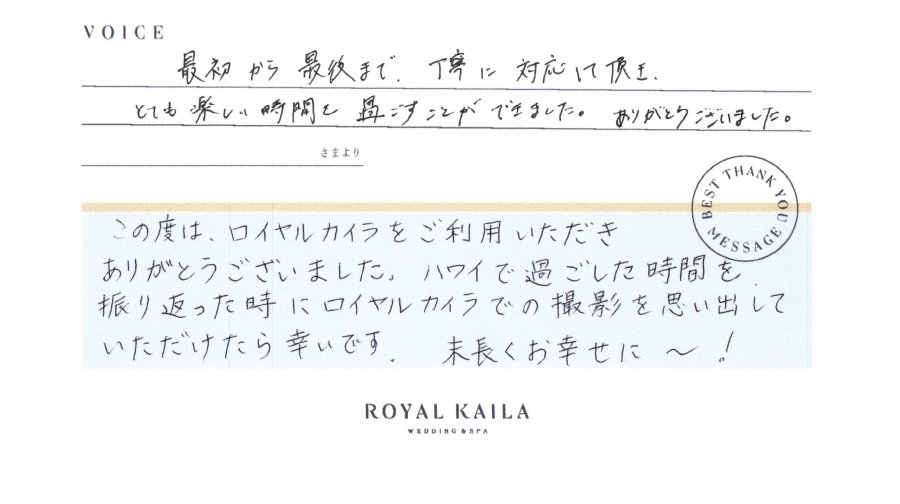 VOICE
最初から最後まで、丁寧に対応して頂き、
とても楽しい時間を過ごすことができました。ありがとうございました。
さまより
BEST THANK YOU MESSAGE
この度は、ロイヤルカイラをご利用いただき
ありがとうございました。ハワイで過ごした時間を
振り返った時にロイヤルカイラでの撮影を思い出して
いただけたら幸いです。 末長くお幸せに〜!
ROYAL KAILA
WEDDING & SPA